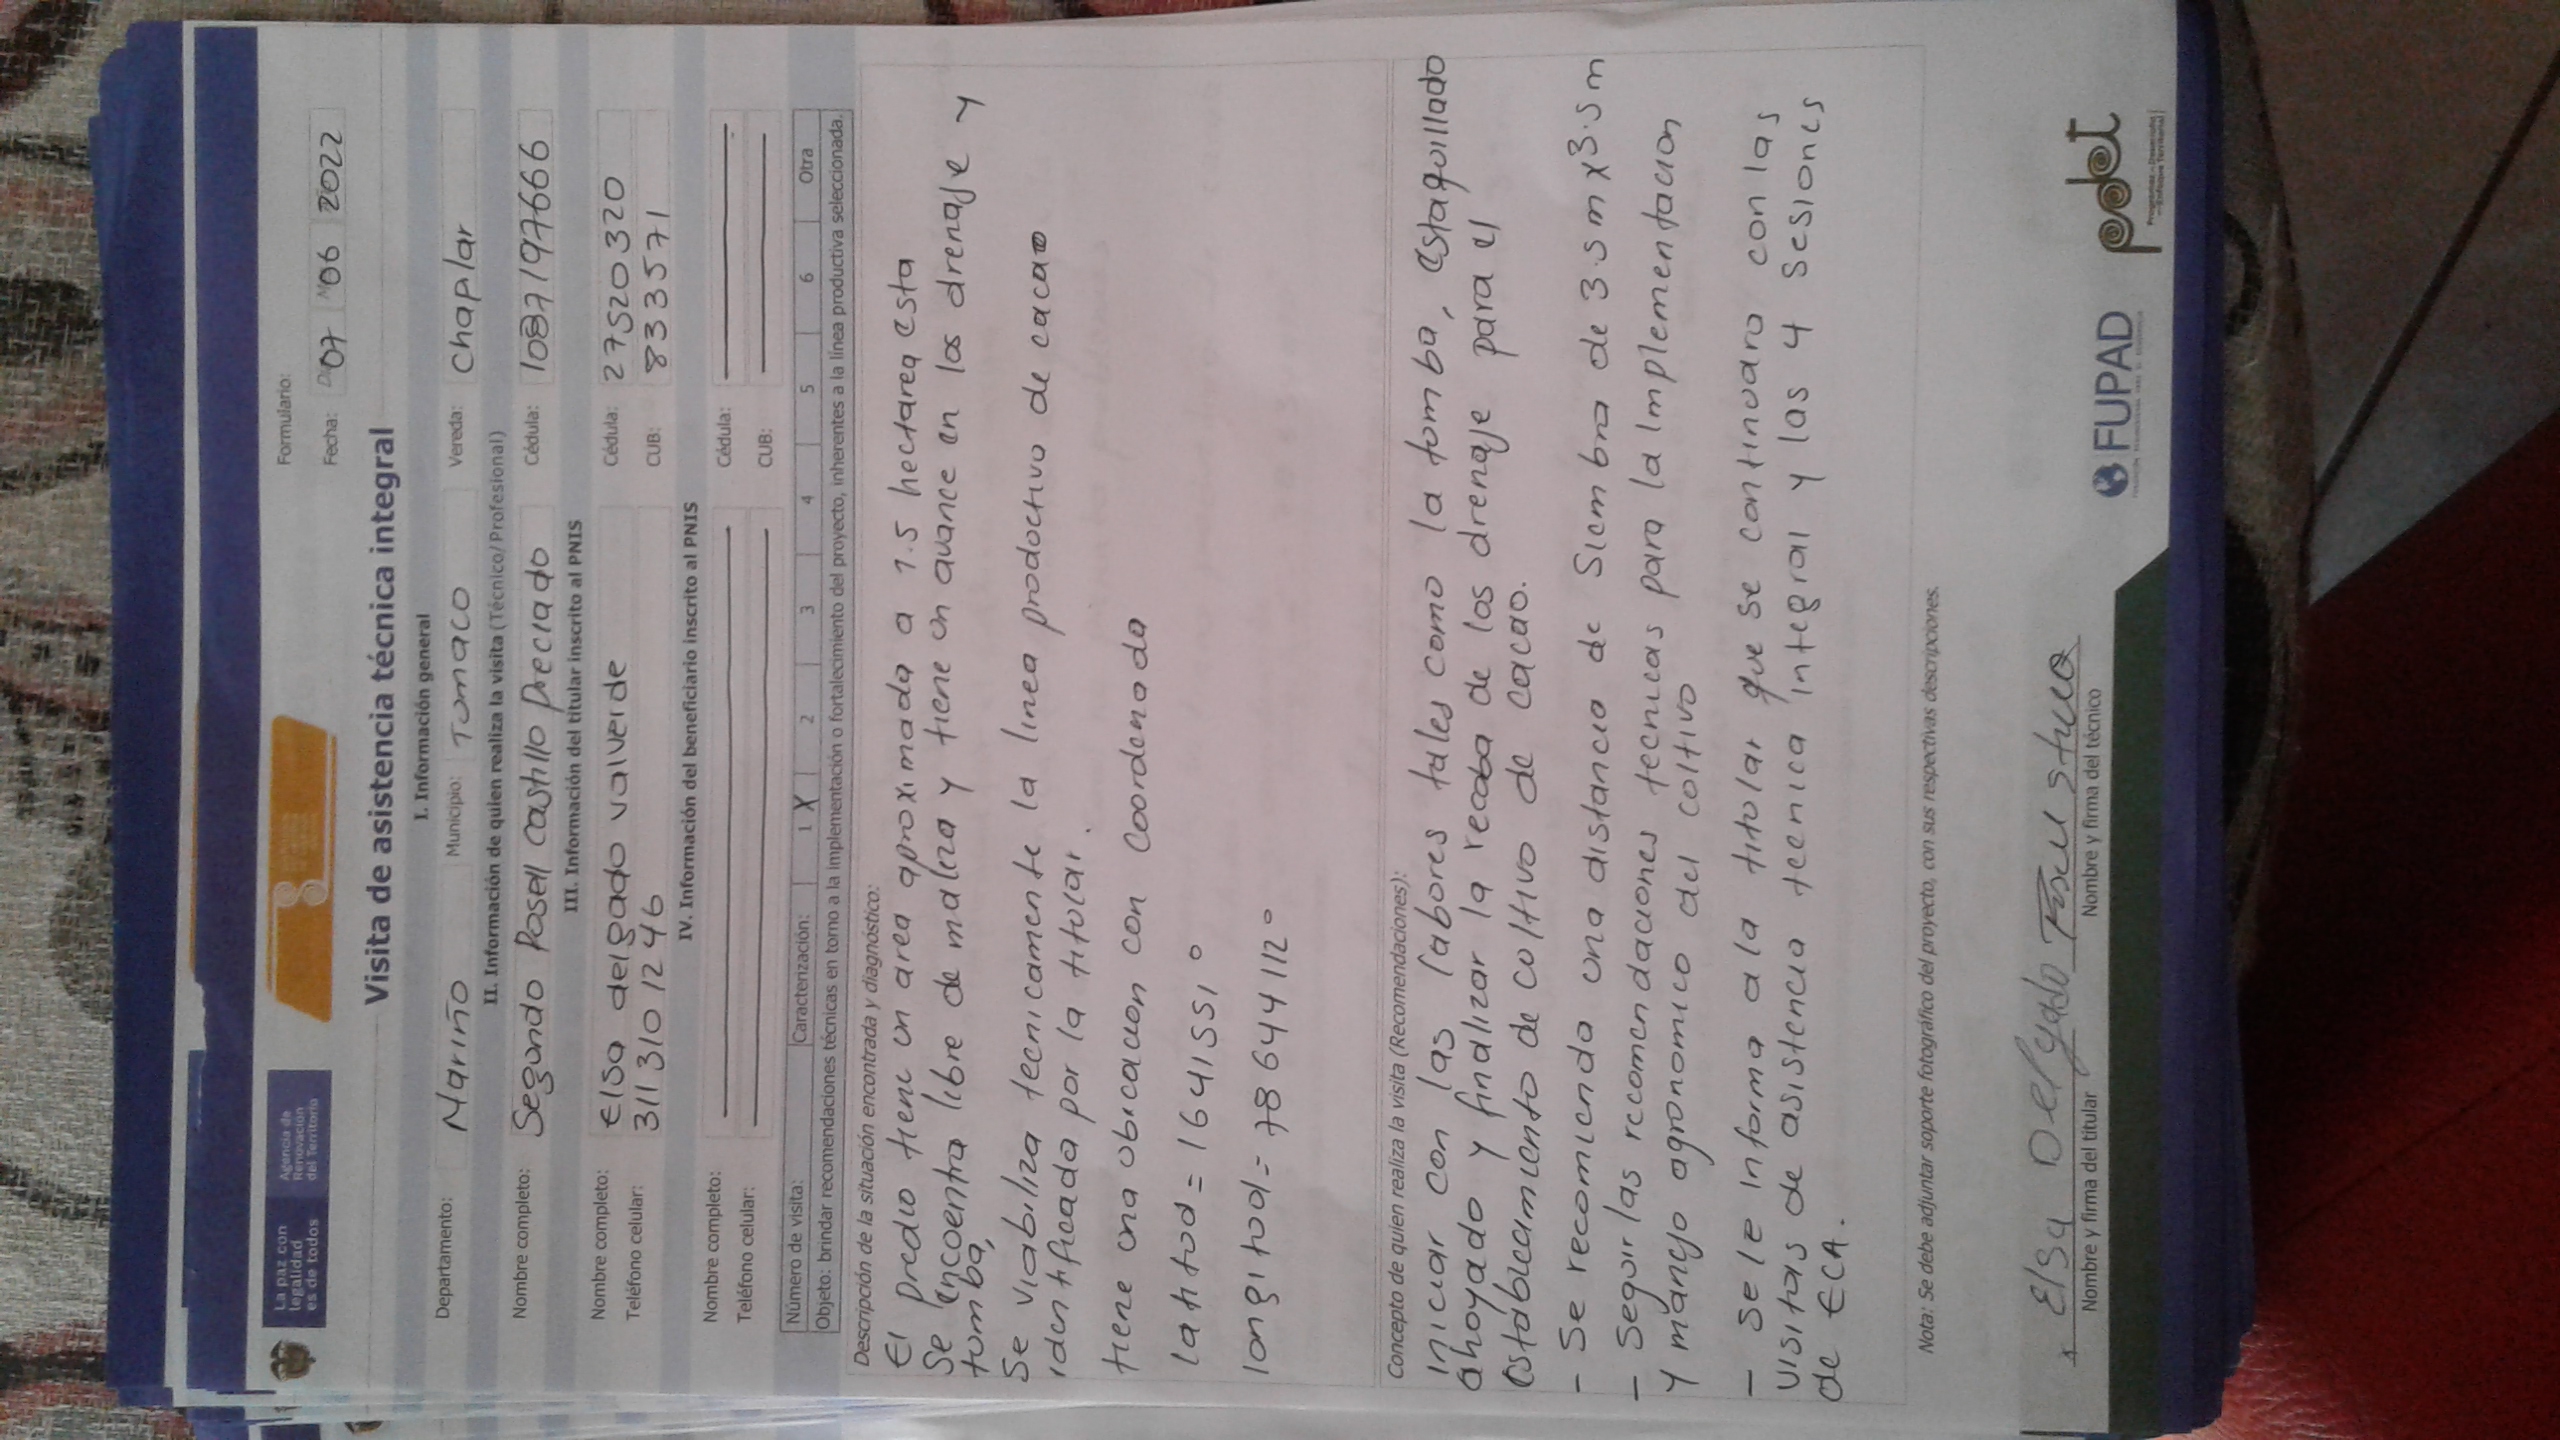 La paz con
legalidad
es de todos
Agencia de
Renovación
del Territorio
Formulario:
Fecha: D 07 M 06 2022
Visita de asistencia técnica integral
I. Información general
Departamento: Nariño Municipio: Tumaco Vereda: Chaplar
II. Información de quien realiza la visita (Técnico/Profesional)
Nombre completo: Segundo Rosell Castillo Preciado Cédula: 1087197666
III. Información del titular inscrito al PNIS
Nombre completo: Elsa delgado valverde Cédula: 27520320
Teléfono celular: 3113101246 CUB: 833571
IV. Información del beneficiario inscrito al PNIS
Nombre completo: Cédula:
Teléfono celular: CUB:
Número de visita: Caracterización: 1 X 2 3 4 5 6 Otra
Objeto: brindar recomendaciones técnicas en torno a la implementación o fortalecimiento del proyecto, inherentes a la línea productiva seleccionada.
Descripción de la situación encontrada y diagnóstico:
El predio tiene un area aproximada a 1.5 hectarea esta
Se encuentra libre de maleza y tiene un avance en los drenaje y
tumba,
Se viabiliza tecnicamente la linea productivo de cacao
identificada por la titular.
tiene una ubicacion con Coordenada
latitud = 1641551°
longitud = 78644112°
Concepto de quien realiza la visita (Recomendaciones):
Iniciar con las labores tales como la tomba, estaquillado
ahoyado y finalizar la recaba de los drenaje para el
establecimiento de cultivo de cacao.
- Se recomienda una distancia de Siembra de 3.5m x 3.5m
- Seguir las recomendaciones tecnicas para la Implementacion
y manejo agronomico del cultivo
- Se le informa a la titular que se continuara con las
visitas de asistencia tecnica integral y las 4 sesiones
de ECA.
Nota: Se debe adjuntar soporte fotográfico del proyecto, con sus respectivas descripciones.
x Elsa Delgado
Nombre y firma del titular Nombre y firma del técnico
FUPAD
pdet
Programas de Desarrollo
con Enfoque Territorial